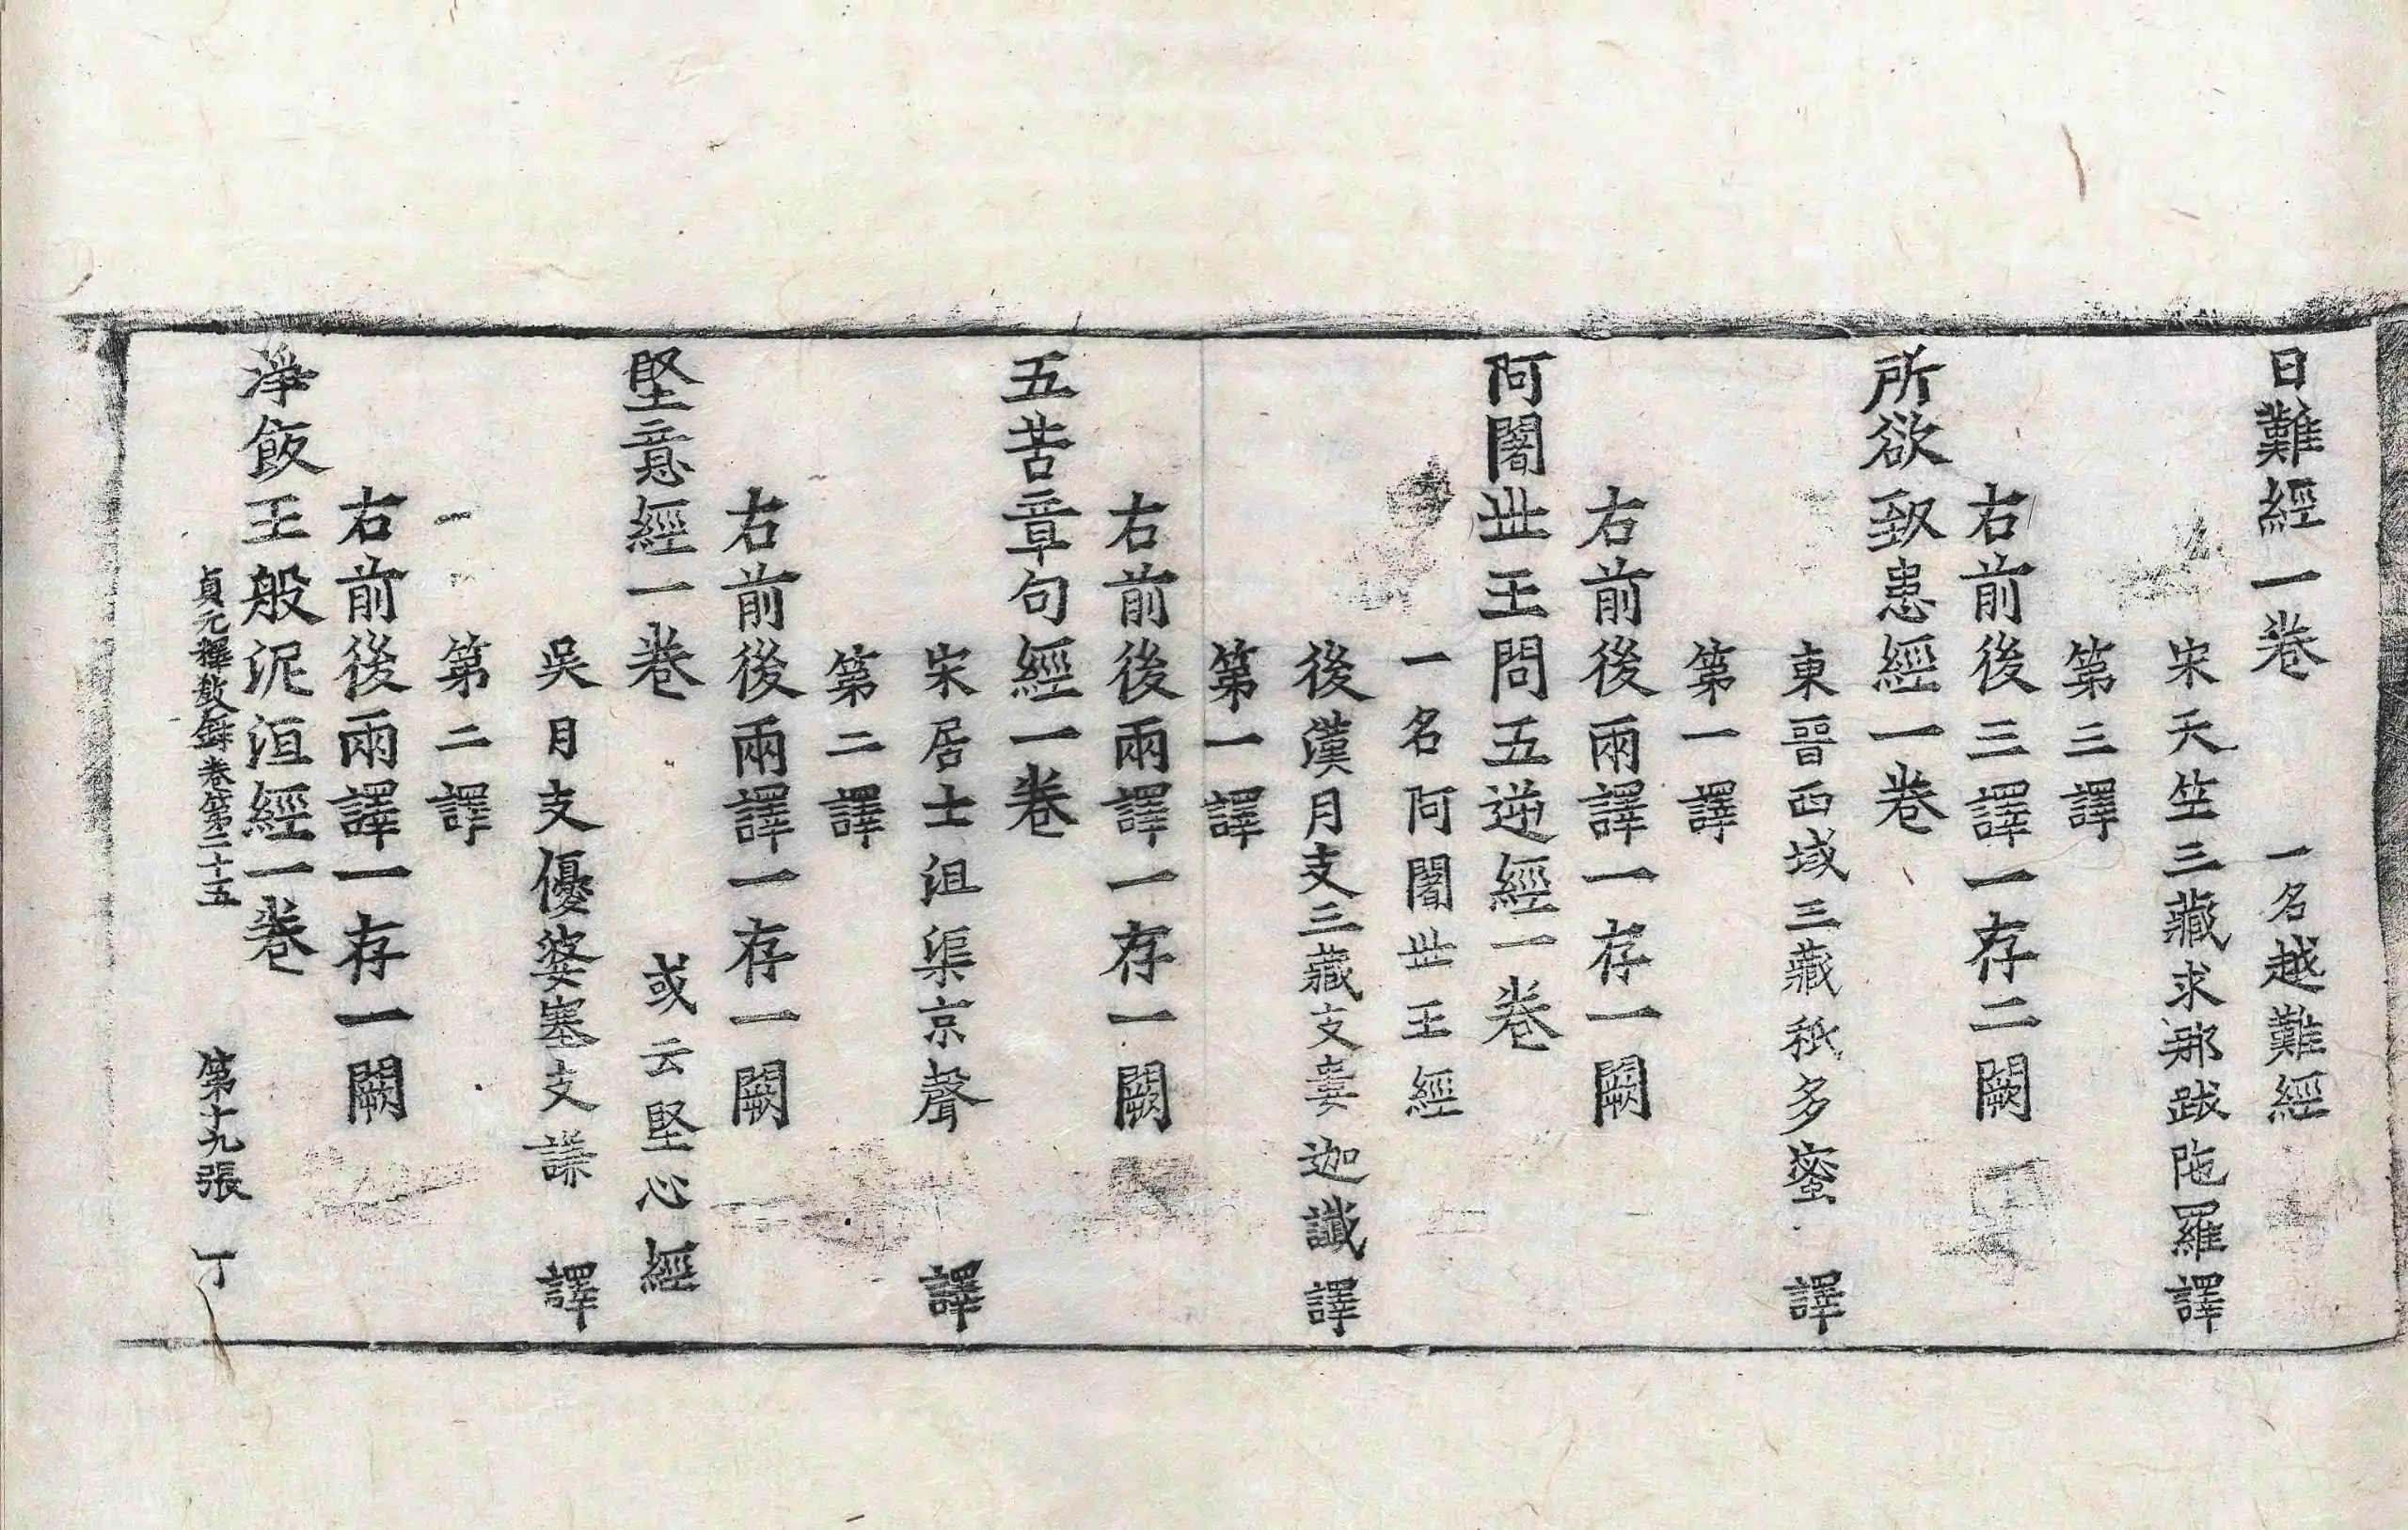 日難經一卷　一名越難經
宋天竺三藏求那跋陁羅譯
第三譯
右前後三譯一存二闕
所欲致患經一卷
東晉西域三藏秖多蜜譯
第一譯
右前後兩譯一存一闕
阿闍世王問五逆經一卷
一名阿闍世王經
後漢月支三藏支婁迦讖譯
第一譯
右前後兩譯一存一闕
五苦章句經一卷
宋居士沮渠京聲　譯
第二譯
右前後兩譯一存一闕
堅意經一卷　或云堅心經
吳月支優婆塞支謙　譯
第二譯
右前後兩譯一存一闕
淨飯王般泥洹經一卷
貞元釋教錄卷第二十五　第十九張　丁